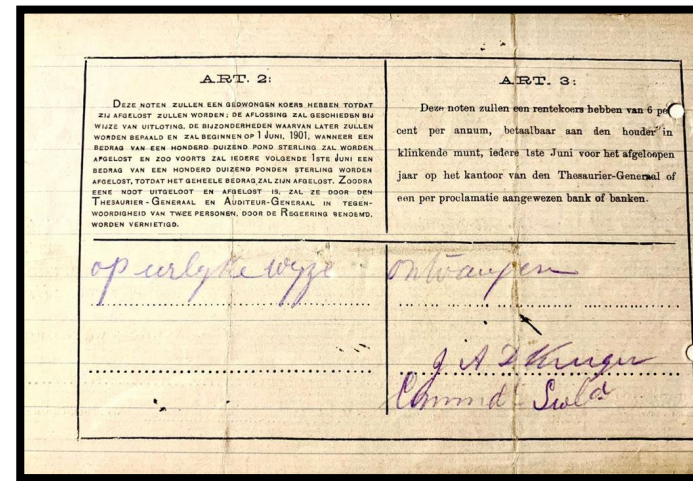 ART. 2:
DEZE NOTEN ZULLEN EEN GEDWONGEN KOERS HEBBEN TOTDAT
ZIJ AFGELOST ZULLEN WORDEN; DE AFLOSSING ZAL GESCHIEDEN BIJ
WIJZE VAN UITLOTING, DE BIJZONDERHEDEN WAARVAN LATER ZULLEN
WORDEN BEPAALD EN ZAL BEGINNEN OP 1 JUNI, 1901, WANNEER EEN
BEDRAG VAN EEN HONDERD DUIZEND POND STERLING ZAL WORDEN
AFGELOST EN ZOO VOORTS ZAL IEDERE VOLGENDE 1STE JUNI EEN
BEDRAG VAN EEN HONDERD DUIZEND PONDEN STERLING WORDEN
AFGELOST, TOTDAT HET GEHEELE BEDRAG ZAL ZIJN AFGELOST. ZOODRA
EENE NOOT UITGELOOT EN AFGELOST IS, ZAL ZE DOOR DEN
THESAURIER-GENERAAL EN AUDITEUR-GENERAAL IN TEGEN-
WOORDIGHEID VAN TWEE PERSONEN, DOOR DE REGEERING BENOEMD,
WORDEN VERNIETIGD.
ART. 3:
Deze noten zullen een rentekoers hebben van 6 per
cent per annum, betaalbaar aan den houder in
klinkende munt, iedere 1ste Juni voor het afgeloopen
jaar op het kantoor van den Thesaurier-Generaal of
een per proclamatie aangewezen bank of banken.
op eerlyke wyze ontvangen
J A D Kruger